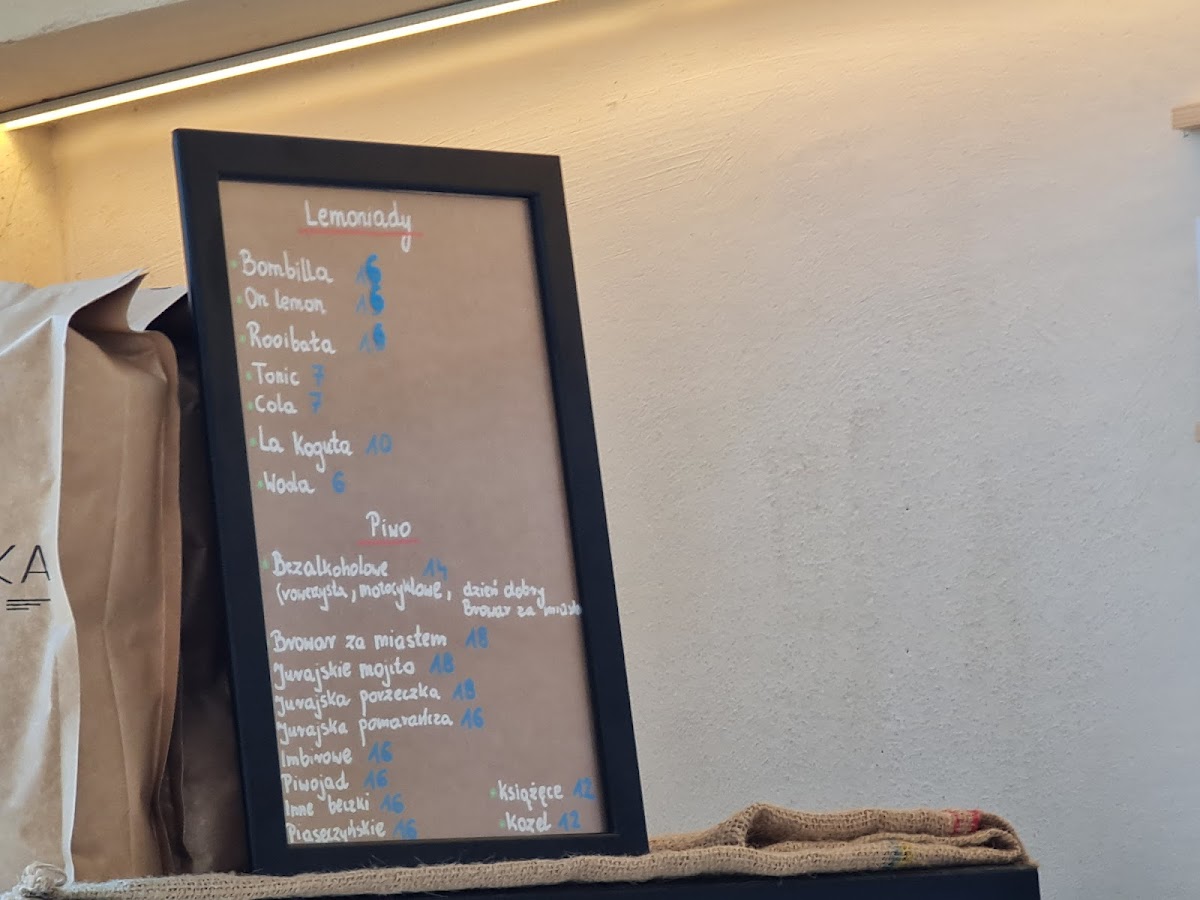 KA
Lemoniady
Bombilla 16
On lemon 16
Rooibata 16
Tonic 7
Cola 7
La Koguta 10
Woda 6
Piwo
Bezalkoholowe 14
(rowerzysta, motocyklowe, dzień dobry
Browar za miastem
Browar za miastem 18
Jurajskie mojito 18
Jurajska porzeczka 18
Jurajska pomarańcza 16
Imbirowe 16
Piwojad 16
Inne beczki 16
Piaseczyńskie 16
Książęce 12
Kozel 12